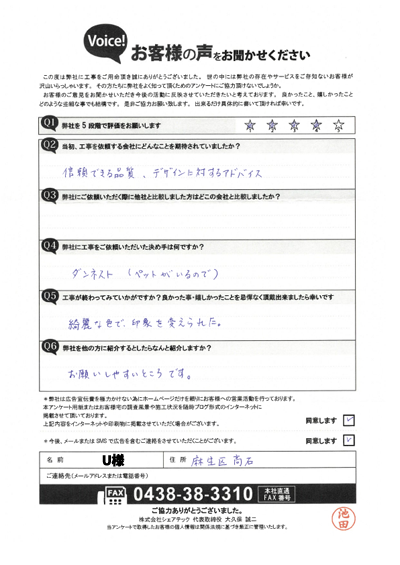 Voice!
お客様の声をお聞かせください
この度は弊社に工事をご用命頂き誠にありがとうございました。 世の中には弊社の存在やサービスをご存知ないお客様が
沢山いらっしゃいます。 その方たちに弊社をよく知って頂くためのアンケートにご協力頂けないでしょうか。
お客様のご意見をお聞かせいただき今後の活動に反映させていただきたいと考えております。 良かったこと、嬉しかったこと
どのような些細な事でも結構です。 是非ご協力お願い致します。 出来るだけ具体的に書いて頂ければ幸いです。
Q1 弊社を5段階で評価をお願いします ☆☆☆☆☆
Q2 当初、工事を依頼する会社にどんなことを期待されていましたか?
信頼できる品質、デザインに対するアドバイス
Q3 弊社にご依頼いただく際に他社と比較しました方はどこの会社と比較しましたか?
Q4 弊社に工事をご依頼いただいた決め手は何ですか?
ダンネスト (ペットがいるので)
Q5 工事が終わってみていかがですか?良かった事・嬉しかったことを忌憚なく頂戴出来ましたら幸いです
綺麗な色で、印象を変えられた。
Q6 弊社を他の方に紹介するとしたらなんと紹介しますか?
お願いしやすいところです。
*弊社は広告宣伝費を極力かけない為にホームページだけを頼りにお客様への営業活動を行っております。
本アンケート用紙またはお客様宅の調査風景や施工状況を随時ブログ形式のインターネットに
掲載させて頂いております。
上記内容をインターネットや印刷物に掲載させていただく場合がございます。 同意します ✓
*今後、メールまたはSMSで広告を含むご連絡をさせていただくことがございます。 同意します ✓
名前 U様 住所 麻生区高石
ご連絡先(メールアドレスまたは電話番号)
FAX 0438-38-3310 本社直通 FAX番号
ご協力ありがとうございました。
株式会社シェアテック 代表取締役 大久保 誠二
当アンケートで取得したお客様の個人情報は関係法規に基づき厳正に管理いたします。
池田